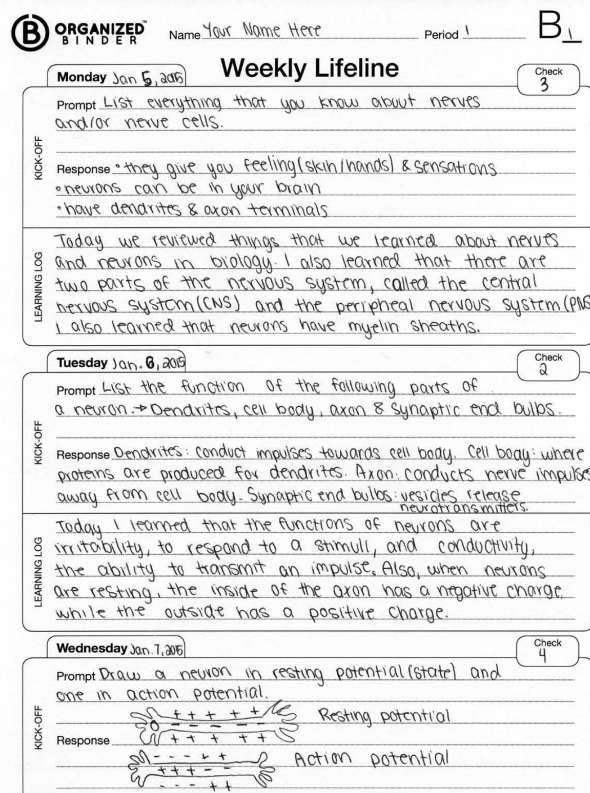 B ORGANIZED™
BINDER
Name Your Name Here
Period 1
B1
Weekly Lifeline
Monday Jan 5, 2015
Check
3
KICK-OFF
Prompt List everything that you know about nerves
and/or nerve cells.
Response • they give you feeling (skin/hands) & sensations
• neurons can be in your brain
• have dendrites & axon terminals
LEARNING LOG
Today we reviewed things that we learned about nerves
and neurons in biology. I also learned that there are
two parts of the nervous system, called the central
nervous system (CNS) and the peripheal nervous system (PNS
I also learned that neurons have myelin sheaths.
Tuesday Jan. 6, 2015
Check
2
KICK-OFF
Prompt List the function of the following parts of
a neuron. → Dendrites, cell body, axon & synaptic end bulbs.
Response Dendrites: conduct impulses towards cell body. Cell body: where
proteins are produced for dendrites. Axon: conducts nerve impulses
away from cell body. Synaptic end bulbs: vesicles release
neurotransmitters.
LEARNING LOG
Today I learned that the functions of neurons are
irritability, to respond to a stimuli, and conductivity,
the ability to transmit an impulse. Also, when neurons
are resting, the inside of the axon has a negative charge
while the outside has a positive charge.
Wednesday Jan. 7, 2015
Check
4
KICK-OFF
Prompt Draw a neuron in resting potential (state) and
one in action potential.
Response
+ + + + +
- - - - -
+ + + +
Resting potential
- - - + +
+ + + - -
- - - + +
Action potential